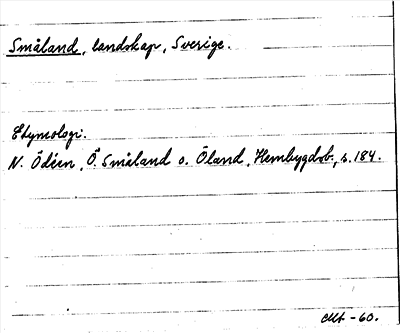 Småland, landskap, Sverige.
Etymologi.
N. Ödéen, Ö. Småland o. Öland, Hembygdsb., s. 184.
-60.